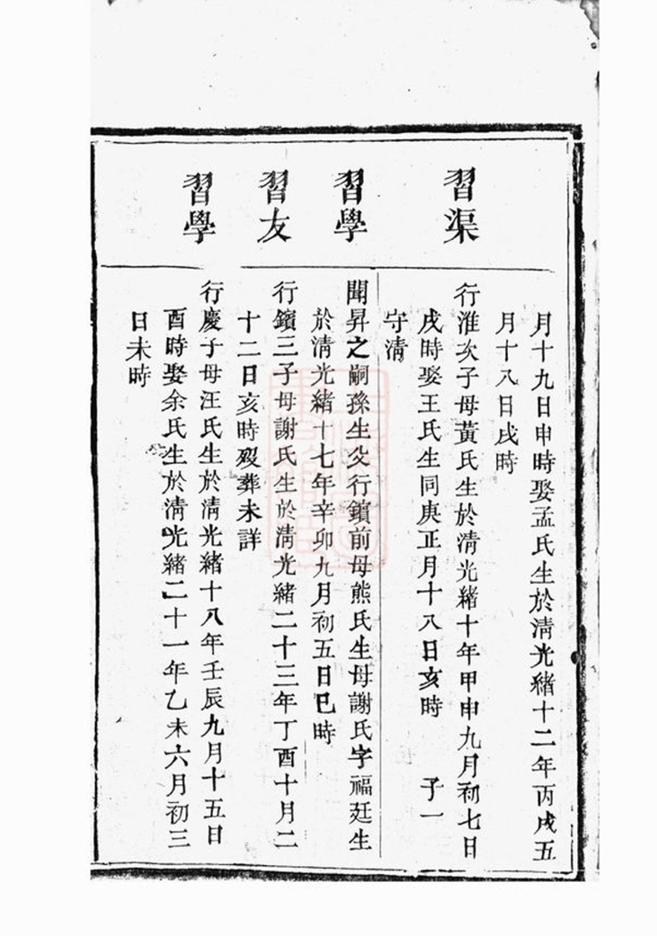 月十九日申時娶孟氏生於清光緒十二年丙戌五
月十八日戌時
習渠
行淮次子母黃氏生於清光緒十年甲申九月初七日
戌時娶王氏生同庚正月十八日亥時 子一
守清
習學
聞昇之嗣孫生父行鑌前母熊氏生母謝氏字福廷生
於清光緒十七年辛卯九月初五日巳時
習友
行鑌三子母謝氏生於清光緒二十三年丁酉十月二
十二日亥時歿葬未詳
習學
行慶子母汪氏生於清光緒十八年壬辰九月十五日
酉時娶余氏生於清光緒二十一年乙未六月初三
日未時